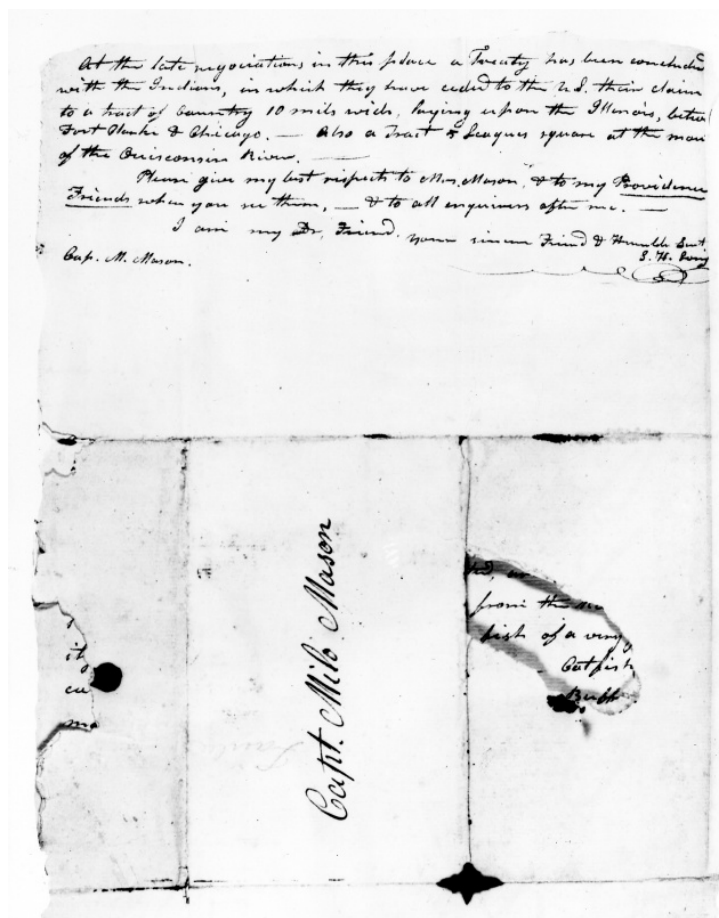 At the late negociations in this place a Treaty has been concluded
with the Indians, in which they have ceded to the U.S. their claim
to a tract of Country 10 mils wide, laying upon the Illinois, betw
Fort Clarke & Chicago. — Also a Tract 5 Leagues square at the mou
of the Ouisconsin River. —
Please give my best respects to Mrs. Mason, & to my Providence
Friends when you see them, — & to all enquirers after me. —
I am my Dr. Friend. your sincere Friend & Humble Servt.
S. H. Long
Capt. M. Mason.
Capt. Milo Mason
from the
fish of a very
Catfish
Buff
it
cu
ma